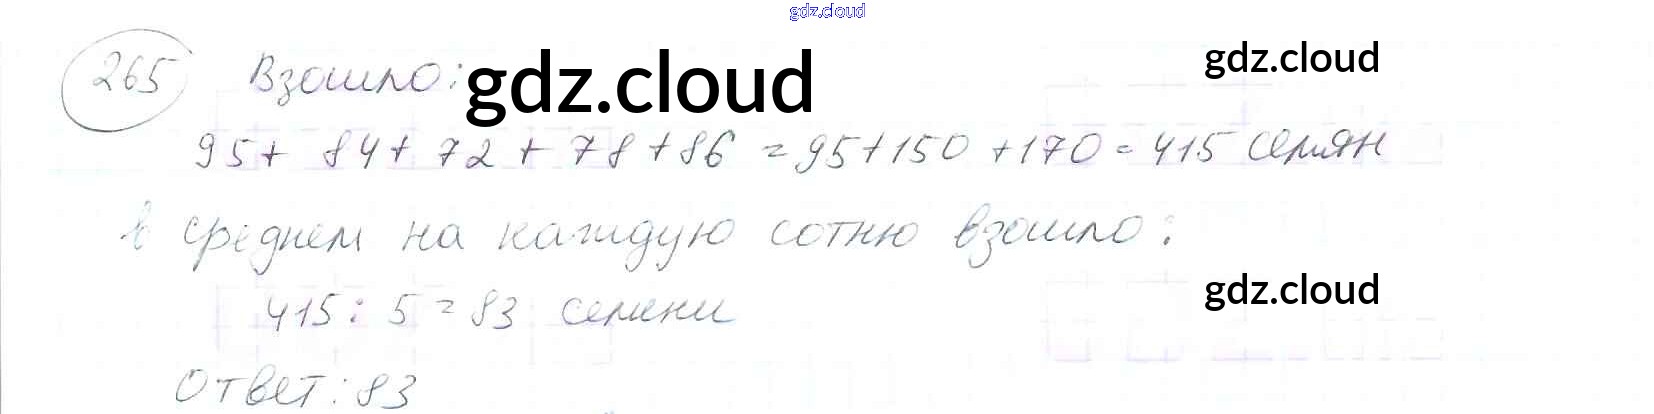 gdz.cloud
265 Взошло: gdz.cloud gdz.cloud
95+ 84+ 72 + 78+86 = 95+150 +170 = 415 семян
в среднем на каждую сотню взошло:
415 : 5 = 83 семени gdz.cloud
Ответ: 83